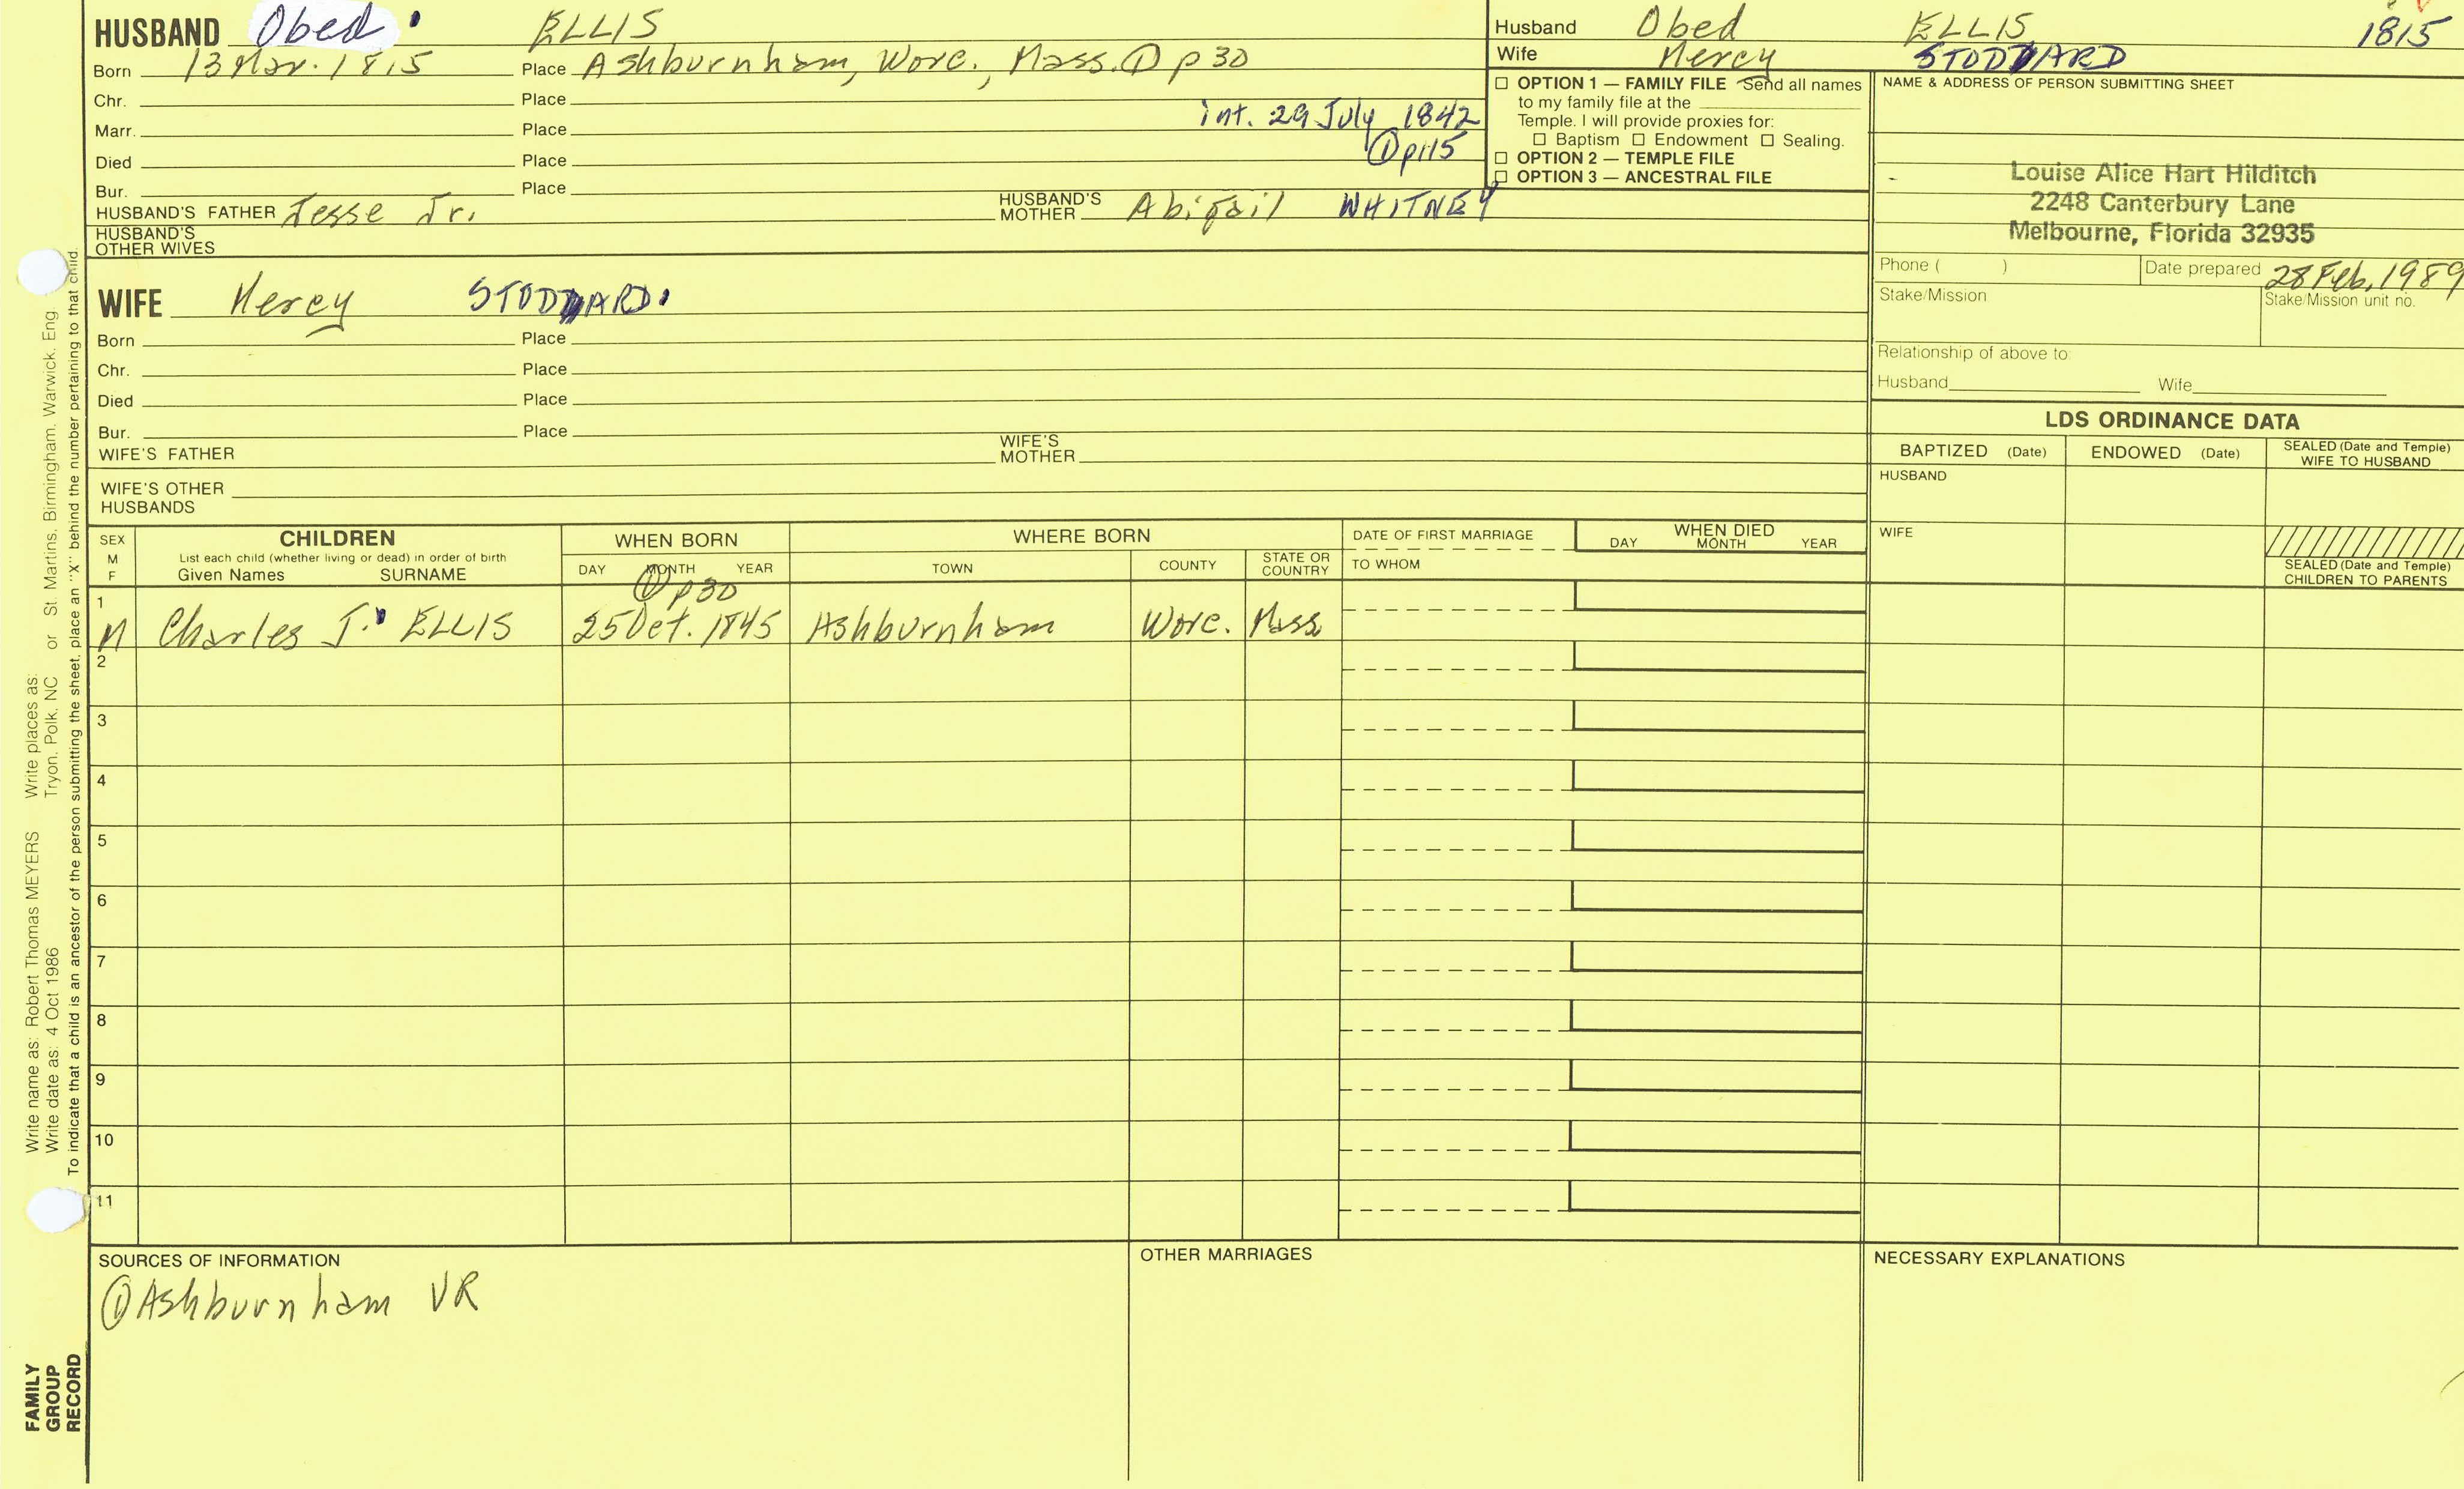 HUSBAND Obed ELLIS
Born 13 Mar. 1815 Place Ashburnham, Worc., Mass. ① p 30
Chr. Place
int. 29 July 1842
Marr. Place
① p115
Died Place
Bur. Place
HUSBAND'S FATHER Jesse Jr. HUSBAND'S MOTHER Abigail WHITNEY
HUSBAND'S OTHER WIVES
Husband Obed ELLIS 1815
Wife Mercy STODDARD
☐ OPTION 1 — FAMILY FILE Send all names
to my family file at the
Temple. I will provide proxies for:
☐ Baptism ☐ Endowment ☐ Sealing.
☐ OPTION 2 — TEMPLE FILE
☐ OPTION 3 — ANCESTRAL FILE
NAME & ADDRESS OF PERSON SUBMITTING SHEET
Louise Alice Hart Hilditch
2248 Canterbury Lane
Melbourne, Florida 32935
Phone ( ) Date prepared 28 Feb, 1989
Stake/Mission Stake/Mission unit no.
Relationship of above to
Husband Wife
WIFE Mercy STODDARD
Born Place
Chr. Place
Died Place
Bur. Place
WIFE'S FATHER WIFE'S MOTHER
WIFE'S OTHER
HUSBANDS
LDS ORDINANCE DATA
BAPTIZED (Date) ENDOWED (Date) SEALED (Date and Temple) WIFE TO HUSBAND
HUSBAND
WIFE
SEALED (Date and Temple)
CHILDREN TO PARENTS
SEX M F CHILDREN WHEN BORN WHERE BORN DATE OF FIRST MARRIAGE WHEN DIED
List each child (whether living or dead) in order of birth
Given Names SURNAME DAY MONTH YEAR TOWN COUNTY STATE OR COUNTRY TO WHOM DAY MONTH YEAR
① p30
1 M Charles J. ELLIS 25 Oct. 1845 Ashburnham Worc. Mass
2
3
4
5
6
7
8
9
10
11
SOURCES OF INFORMATION
① Ashburnham VR
OTHER MARRIAGES
NECESSARY EXPLANATIONS
Write name as: Robert Thomas MEYERS Write places as:
Write date as: 4 Oct 1986 Tryon, Polk, NC or St. Martins, Birmingham, Warwick, Eng.
To indicate that a child is an ancestor of the person submitting the sheet, place an "X" behind the number pertaining to that child.
FAMILY
GROUP
RECORD